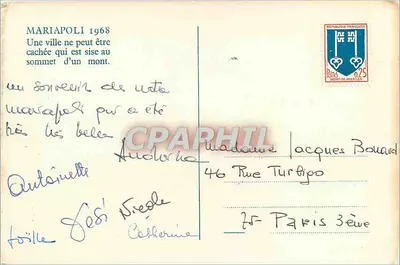 MARIAPOLI 1968
Une ville ne peut être
cachée qui est sise au
sommet d'un mont.
un souvenir de notre
mariapoli qui a été
très très belle
Antoinette
Joëlle
Gési
Nicole
Catherine
REPUBLIQUE FRANCAISE
0,25
CPARPHIL
Madame Jacques Bonnard
46 Rue Turbigo
75- Paris 3ème